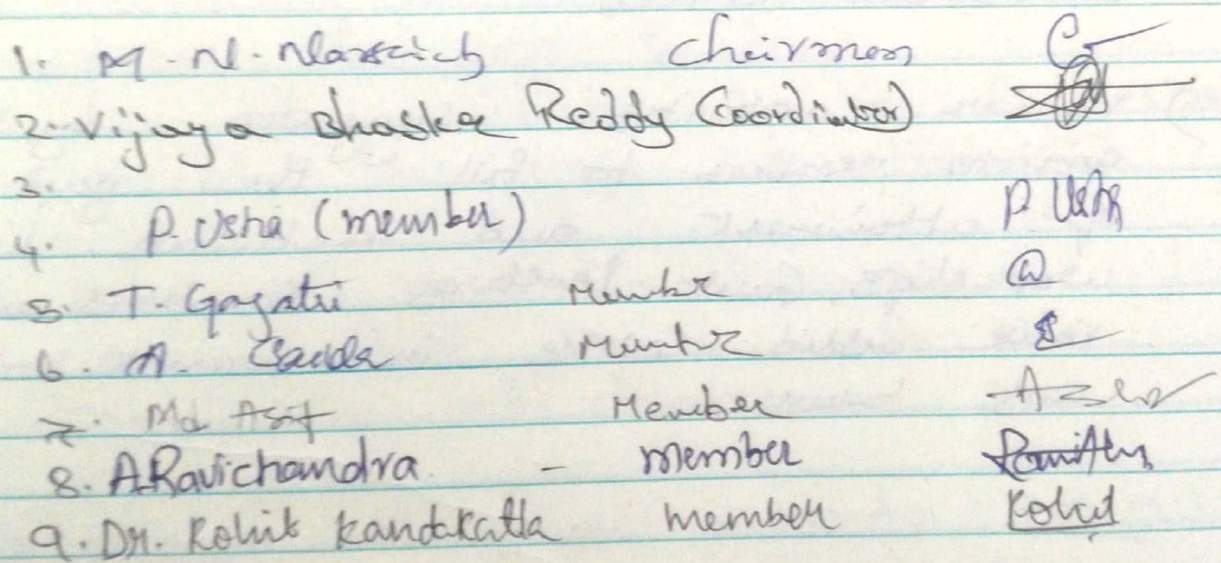 1. M. N. Narsaiah Chairman
2. Vijaya Bhaskar Reddy (Coordinator)
3.
4. P. Usha (member) P. Usha
5. T. Gayatri Member
6. A. Member
7. Md Asif Member
8. A.Ravichandra - member
9. Dr. Rohit Kandakatla member Rohit